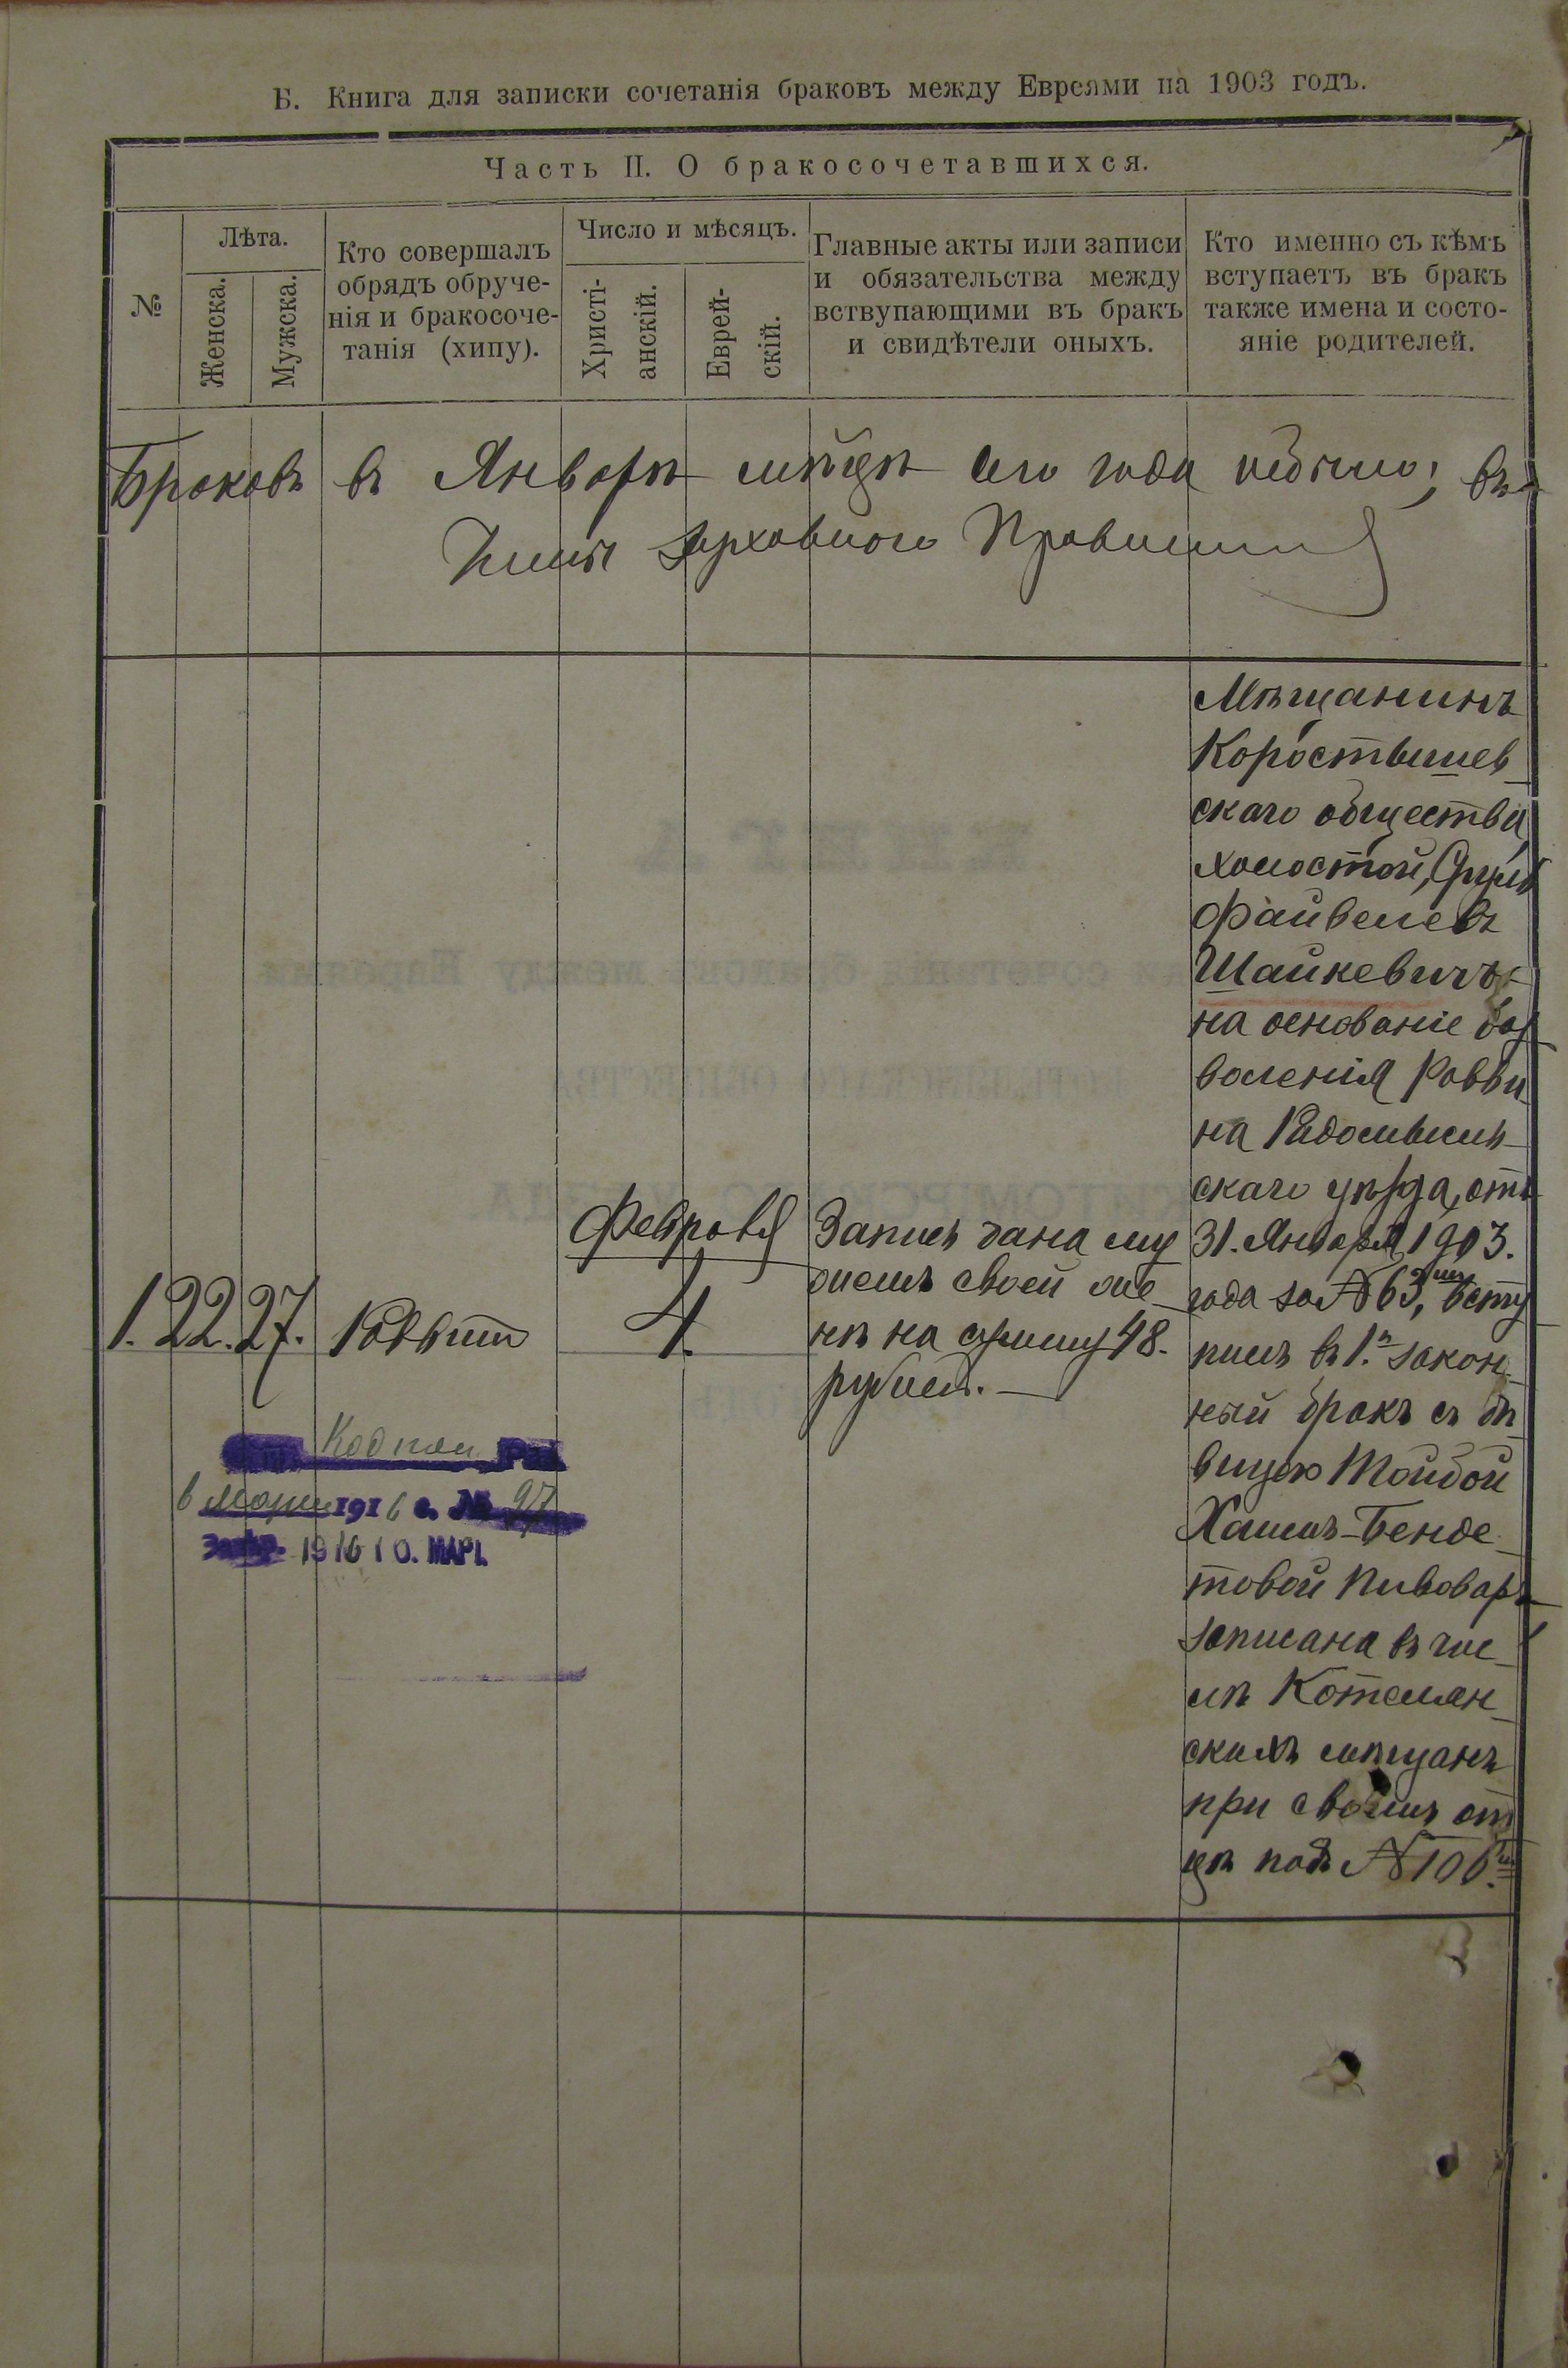 Б. Книга для записки сочетанія браковъ между Евреями на 1903 годъ.
Часть II. О бракосочетавшихся.
№
Лѣта.
Женска.
Мужска.
Кто совершалъ
обрядъ обруче-
нія и бракосоче-
танія (хипу).
Число и мѣсяцъ.
Христі-
анскій.
Еврей-
скій.
Главные акты или записи
и обязательства между
вствупающими въ бракъ
и свидѣтели оныхъ.
Кто именно съ кѣмъ
вступаетъ въ бракъ
также имена и состо-
яніе родителей.
Браковъ въ Январѣ сего года небыло;
Духовного
1. 22. 27.
Раввинъ
Февраля
4.
Запись дана му
жемъ своей же
нѣ на сумму 48.
рублей. —
Мѣщанинъ
Коростышев
скаго общества,
холостой, Сруль
Файвелевъ
Шайкевичъ
на основаніе доз
воленія Равви
на Радомысль
скаго уѣзда, отъ
31. Января 1903.
года за № 63, всту
пилъ въ 1.й закон
ный бракъ съ дѣ
вицею Тойбой
Хаимъ-Бенде
товой Пивоваръ
записана въ чис
лѣ Котелян
скихъ мѣщанъ
при своемъ от
цѣ подъ № 106.
в 1916 г. № 97
1916 10. МАРТ.